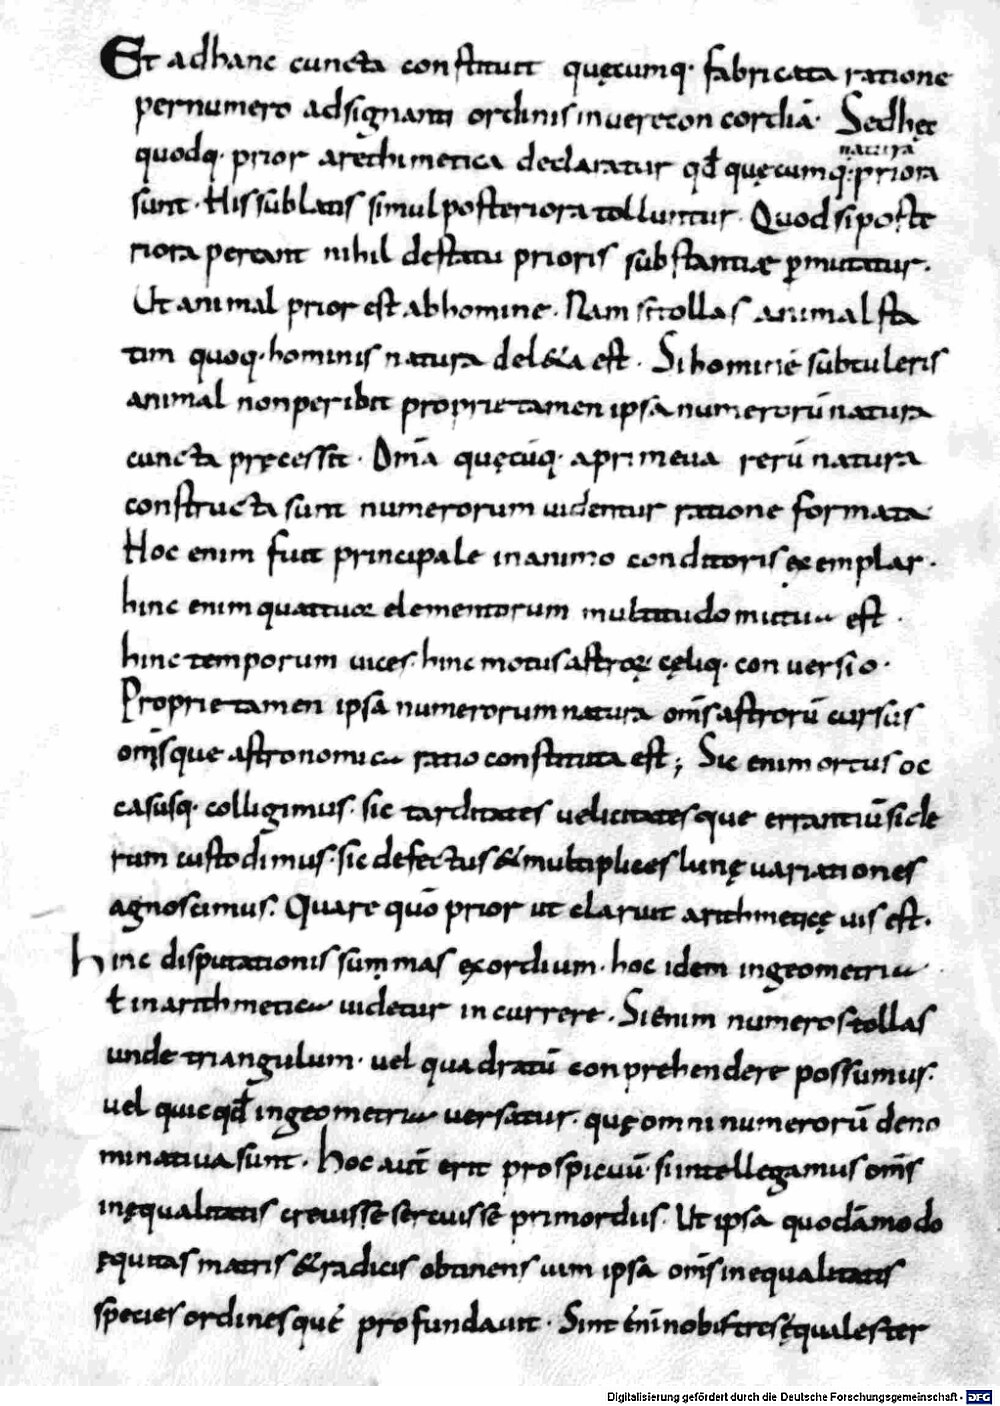 Et adhanc cuncta constituit quęcumq· fabricata ratione
pernumero adsignanti ordinis inuerecon cordiā· Sed hęc
quodq· prior arethimetica declaratur qđ quęcumq· natura priora
sunt· His sublatis simul posteriora tolluntur· Quod si poste
riora pereant nihil destatu prioris substantiæ p̱mutatur·
Ut animal prior est abhomine· Nam si tollas animal sta
tim quoq· hominis natura del&a est· Si hominē subtuleris
animal nonperibit proprie tamen ipsa numerorū natura
cuncta pręcessit· Om̄a quęcūq· aprimeua rerū natura
constructa sunt numerorum uidentur ratione formata
Hoc enim fuit principale inanimo conditoris exemplar·
hinc enim quattuor elementorum multitudo mutua est·
hinc temporum uices· hinc motus astroꝝ cęliq· conuersio·
Proprie tamen ipsa numerorum natura om̄s astrorū cursus
om̄sque astronomica ratio constituta est; Sic enim ortus oc
casusq· colligimus· sic tarditates uelicitatesque errantiū side
rum custodimus· sic defectus & multiplices lunę uariationes
agnoscimus· Quare quō prior ut claruit arithmeticę uis est·
hinc disputationis summas exordium· hoc idem ingeometria
ł inarithmetica uidetur incurrere· Si enim numeros tollas
unde triangulum· uel quadratū conprehendere possumus·
uel quicqđ ingeometria uersatur· quę omni numerorū deno
minatiua sunt· hoc aūt erit prospicuū· si intellegamus om̄s
inęqualitatis creuisse sercuisse primordiis· Ut ipsa quodāmodo
ęquitas matris & radicis obtinens uim ipsa om̄s inequalitatis
species ordinesque profundauit· Sint ēnī nobis tres ęquales ter
Digitalisierung gefördert durch die Deutsche Forschungsgemeinschaft - DFG